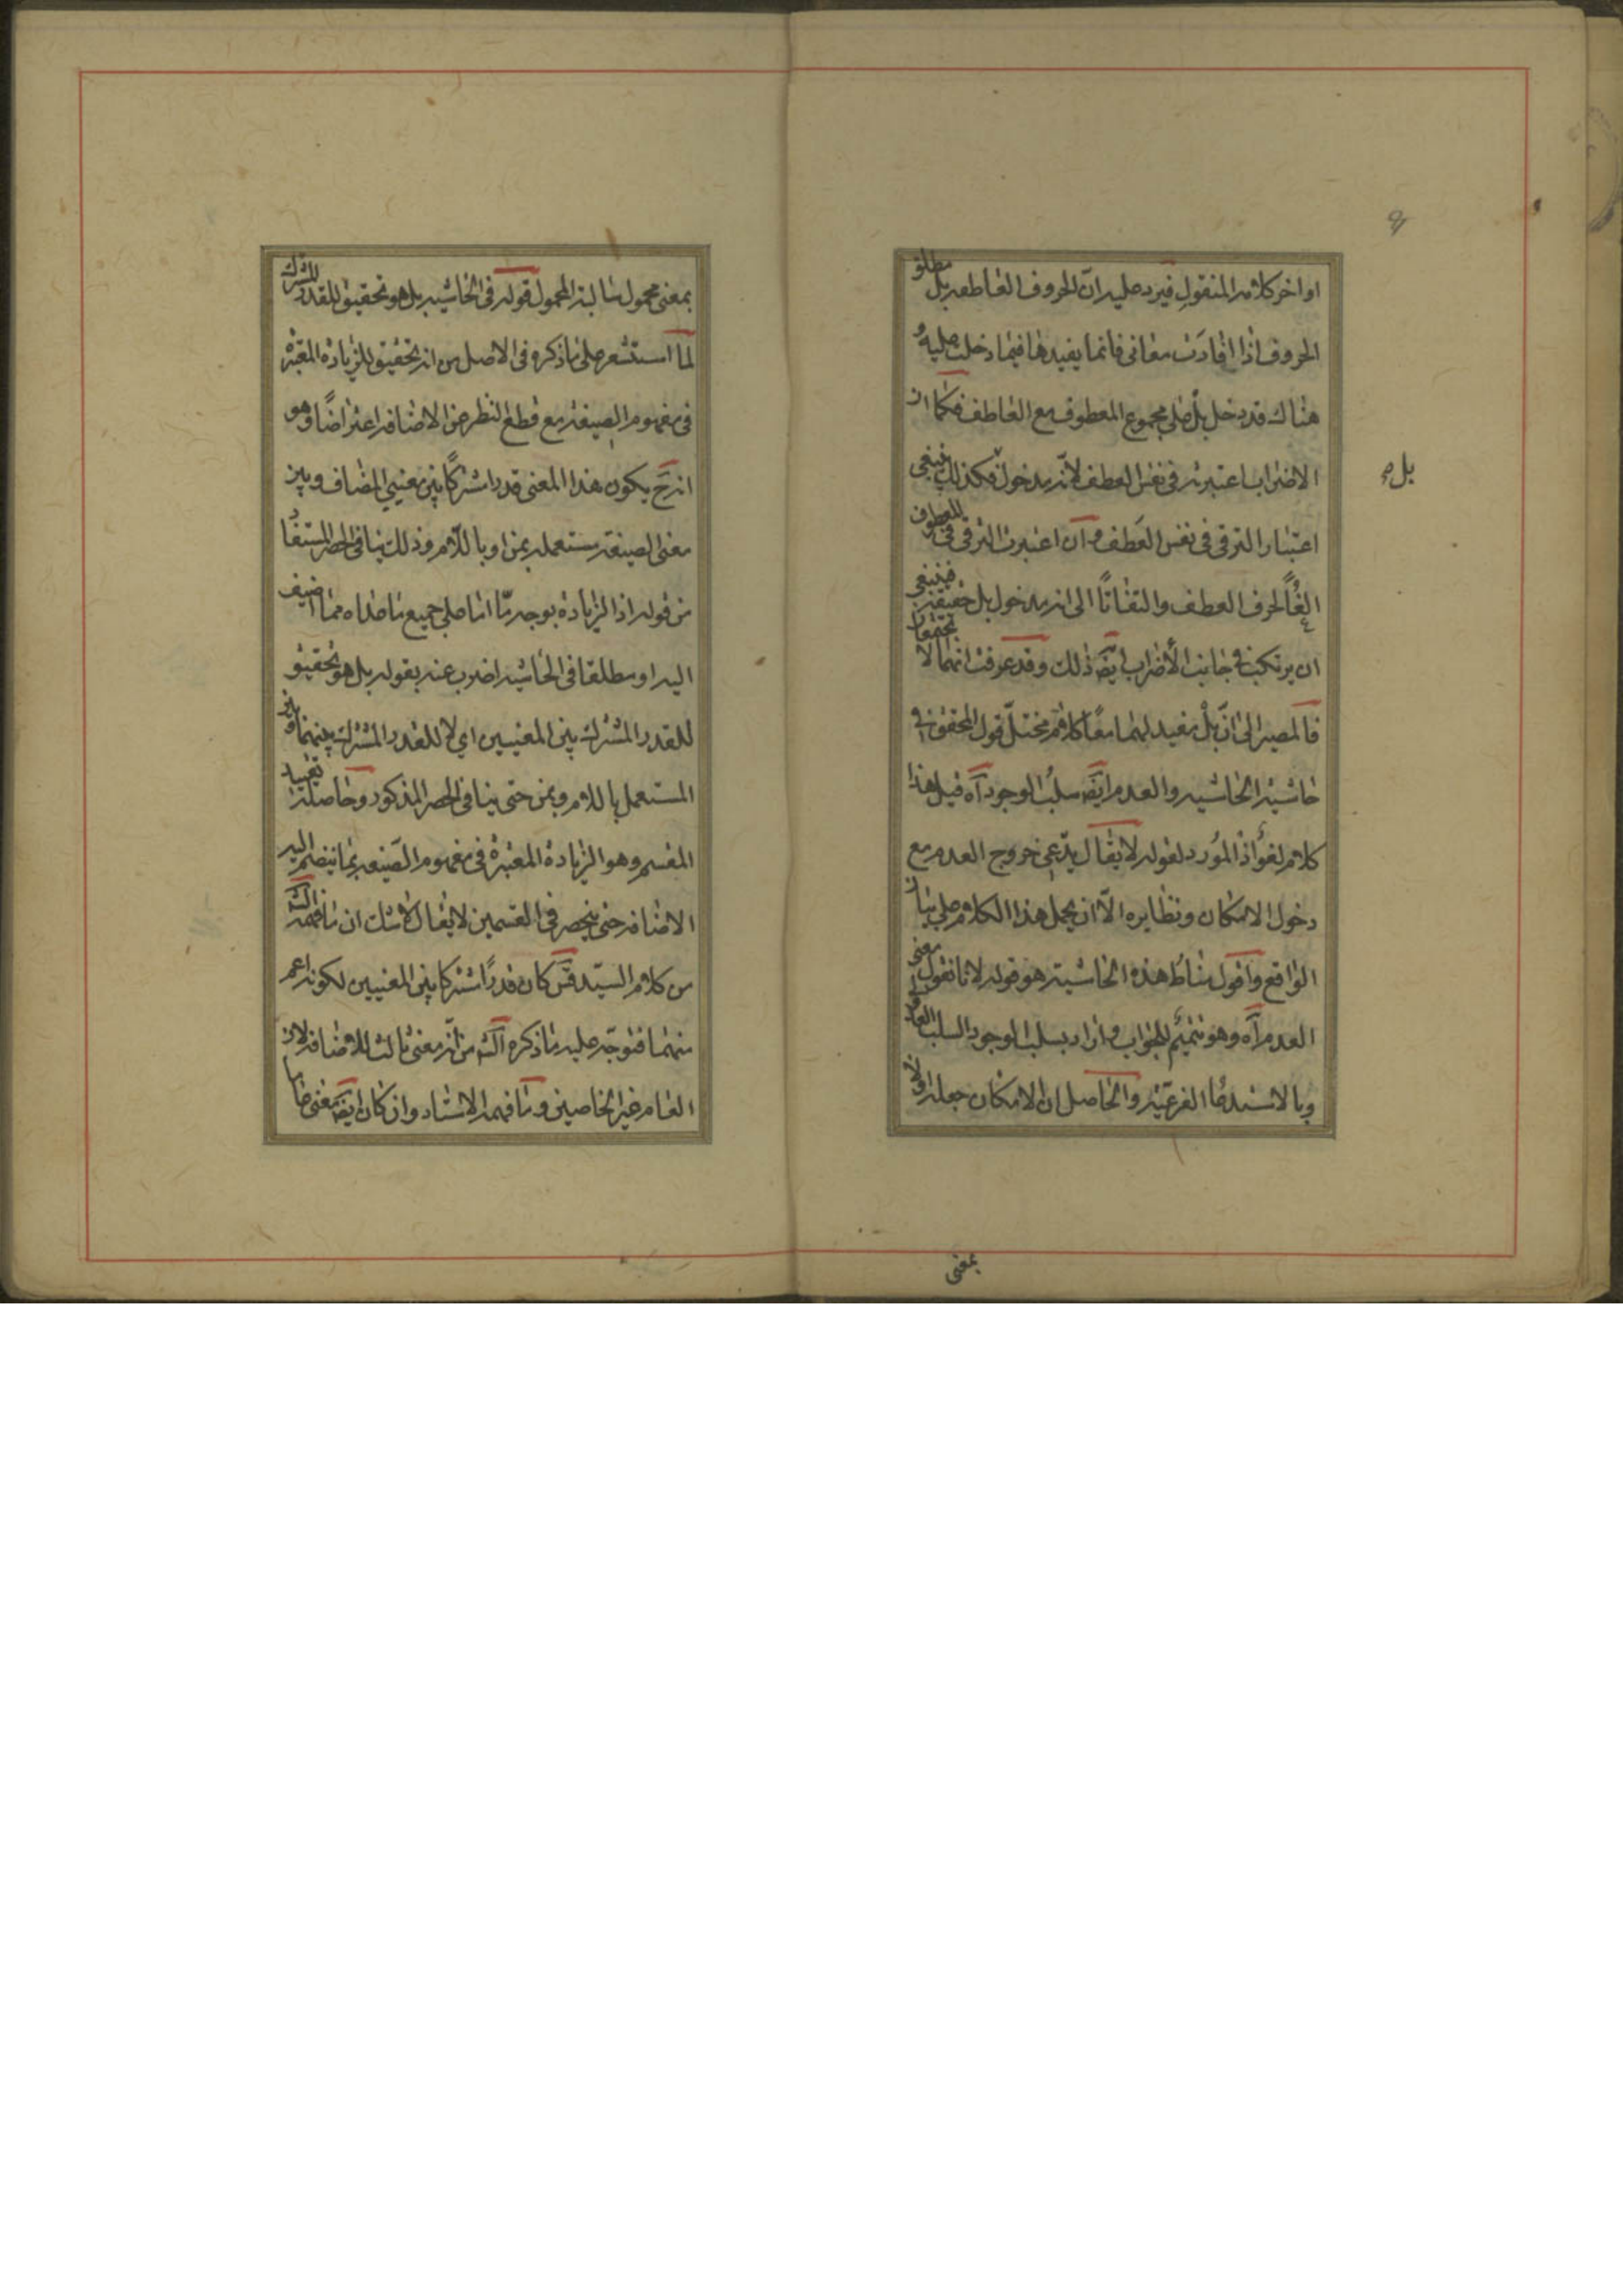 اواخر كلامه المنقول فيرد عليه ان الحروف العاطفه بل مطلق
الحروف اذا افادت معانى فانما يفيدها فيما دخلت عليه و
هناك قد دخل بل على مجموع المعطوف مع العاطف فكما ان
الاضراب اعتبرته فى نفس العطف لانه مدخول فكذلك ينبغى
بل م
اعتبار الترقى فى نفس العطف و ان اعتبرت الترقى فى المعطوف
الغاً لحرف العطف والتفاتاً الى انه مدخول بل حقيقة فينبغى
ان يرتكب فى جانب الأضراب ايضَ ذلك وقد عرفت انهما لا يجتمعان
فالمصير الى انّ بل مفيد لهما معًا كلام مختلّ قول المحقق فى
حاشية الحاشيه والعدم ايضَ سلب الوجود آه قيل هذا
كلام لغو اذ المورد لقوله لا يقال يدّعى خروج العدم مع
دخول الامكان ونظايره الّا ان يحمل هذا الكلام على بيان
الواقع واقول مناط هذه الحاشية هو قوله لانا نقول معنى
العدم آه وهو تتميم للجواب و اراد بسلب الوجود السلب
وبالاستدعا الفرعيّه والحاصل ان الامكان جعله اولا
بمعنى
بمعنى محمول سالبة المحمول قوله فى الحاشيه بل هو تحقيق للقدر المشترك
لما استشعر على ما ذكره فى الاصل من انه تحقيق للزيادة المعتبرة
فى مفهوم الصيغة مع قطع النظر عن الاضافه اعتراضًا وهو
انه حَ يكون هذا المعنى قدرا مشتركًا بين معنيي المضاف وبين
معنى الصيغة مستعمله بمن او باللّام وذلك ينافى الحصر المستفاد
من قوله اذ الزيادة بوجه مّا اما على جميع ما عداه مما اضيف
اليه او مطلقا فى الحاشيه اضرب عنه بقوله بل هو تحقيق
للقدر المشترك بين المعنيين اي لا للقدر المشترك بينهما وبين
المستعمل باللام وبمن حتى ينافى الحصر المذكور وحاصله تقييد
المقسم وهو الزيادة المعتبرة فى مفهوم الصّيغه بما ينضم اليه
الاضافه حتى ينحصر فى القسمين لا يقال لا شك ان ما فهمه
من كلام السيّد قسَ كان قدرًا مشتركا بين المعنيين لكونه اعم
منهما فتوجّه عليه ما ذكره من انّه معنى ثالث للاضافه لان
العام غير الخاصين وما فهمه الاستاد وان كان ايضَ معنى